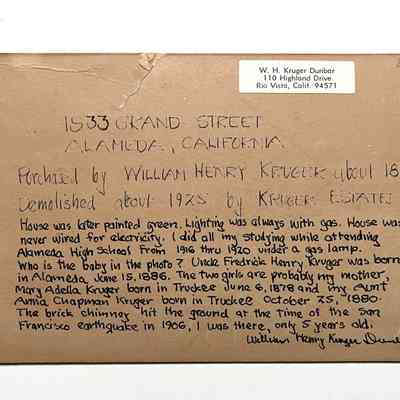 W. H. Kruger Dunbar
110 Highland Drive
Rio Vista, Calif. 94571
1533 GRAND STREET
ALAMEDA, CALIFORNIA
Purchased by WILLIAM HENRY KRUGER about 18
Demolished about 1925 by KRUGER ESTATE
House was later painted green. Lighting was always with gas. House was
never wired for electricity. I did all my studying while attending
Alameda High School from 1916 thru 1920 under a gas lamp.
Who is the baby in the photo? Uncle Fredrick Henry Kruger was born
in Alameda, June 15, 1886. The two girls are probably my mother,
Mary Adella Kruger born in Truckee June 6, 1878 and my Aunt
Anna Chapman Kruger born in Truckee October 25, 1880.
The brick chimney hit the ground at the time of the San
Francisco earthquake in 1906, I was there, only 5 years old.
William Henry Kruger